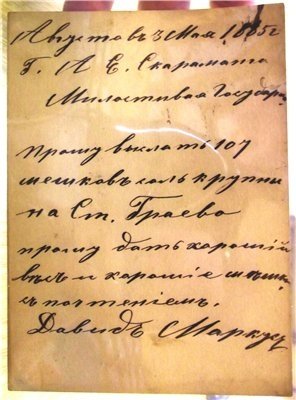 Августовъ 3 Мая 1885 г
Г. А Е. Скараманга
Милостивая Государ
Прошу выслать 107
мешковъ соль крупни
на Ст. Граево
прошу дать хорошій
вѣсъ и хорошіе мѣшки
съ почтеніемъ.
Давидъ Маркус